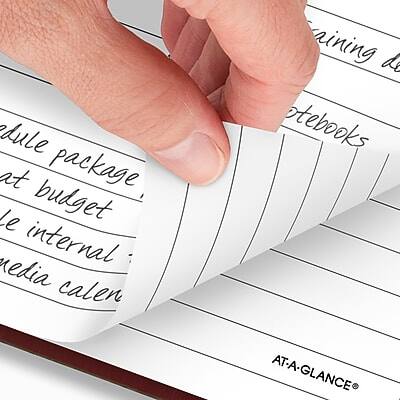 raining d
otebooks
edule package
at budget
le internal
media calen
AT-A-GLANCE®